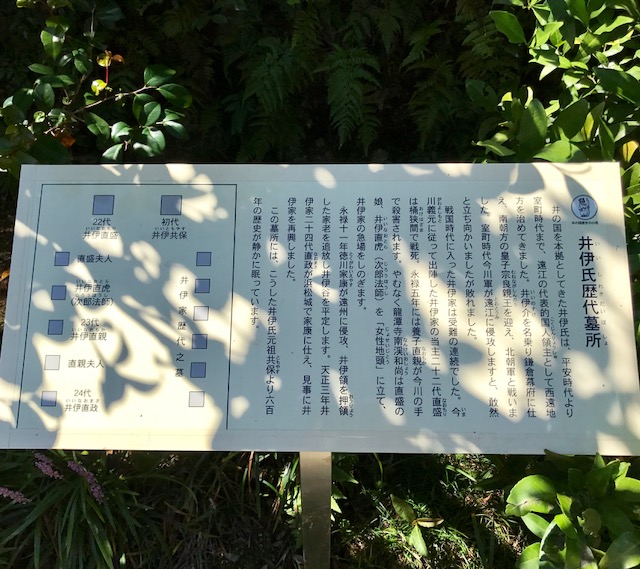 井伊氏歴代墓所
井の国を本拠としてきた井伊氏は、平安時代より
室町時代まで、遠江の代表的国人領主として西遠地
方を治めてきました。井伊介を名乗り鎌倉幕府に仕
え、南朝方の皇子宗良親王を迎え、北朝軍と戦いま
した。室町時代今川軍が遠江に侵攻しますと、敢然
と立ち向かいましたが敗れました。
戦国時代に入った井伊家は受難の連続でした。今
川義元に従って出陣した井伊家の当主二十二代直盛
は桶狭間で戦死、永禄五年には養子直親が今川の手
で殺害されます。やむなく龍潭寺南渓和尚は直盛の
娘、井伊直虎（次郎法師）を「女性地頭」に立て、
井伊家の急場をしのぎます。
永禄十一年徳川家康が遠州に侵攻、井伊領を押領
した家老を追放し井伊谷を平定します。天正三年井
伊家二十四代直政が浜松城で家康に仕え、見事に井
伊家を再興しました。
この墓所には、こうした井伊氏元祖共保より六百
年の歴史が静かに眠っています。
初代
井伊共保
22代
井伊直盛
井伊家歴代之墓
直盛夫人
井伊直虎
(次郎法師)
23代
井伊直親
直親夫人
24代
井伊直政